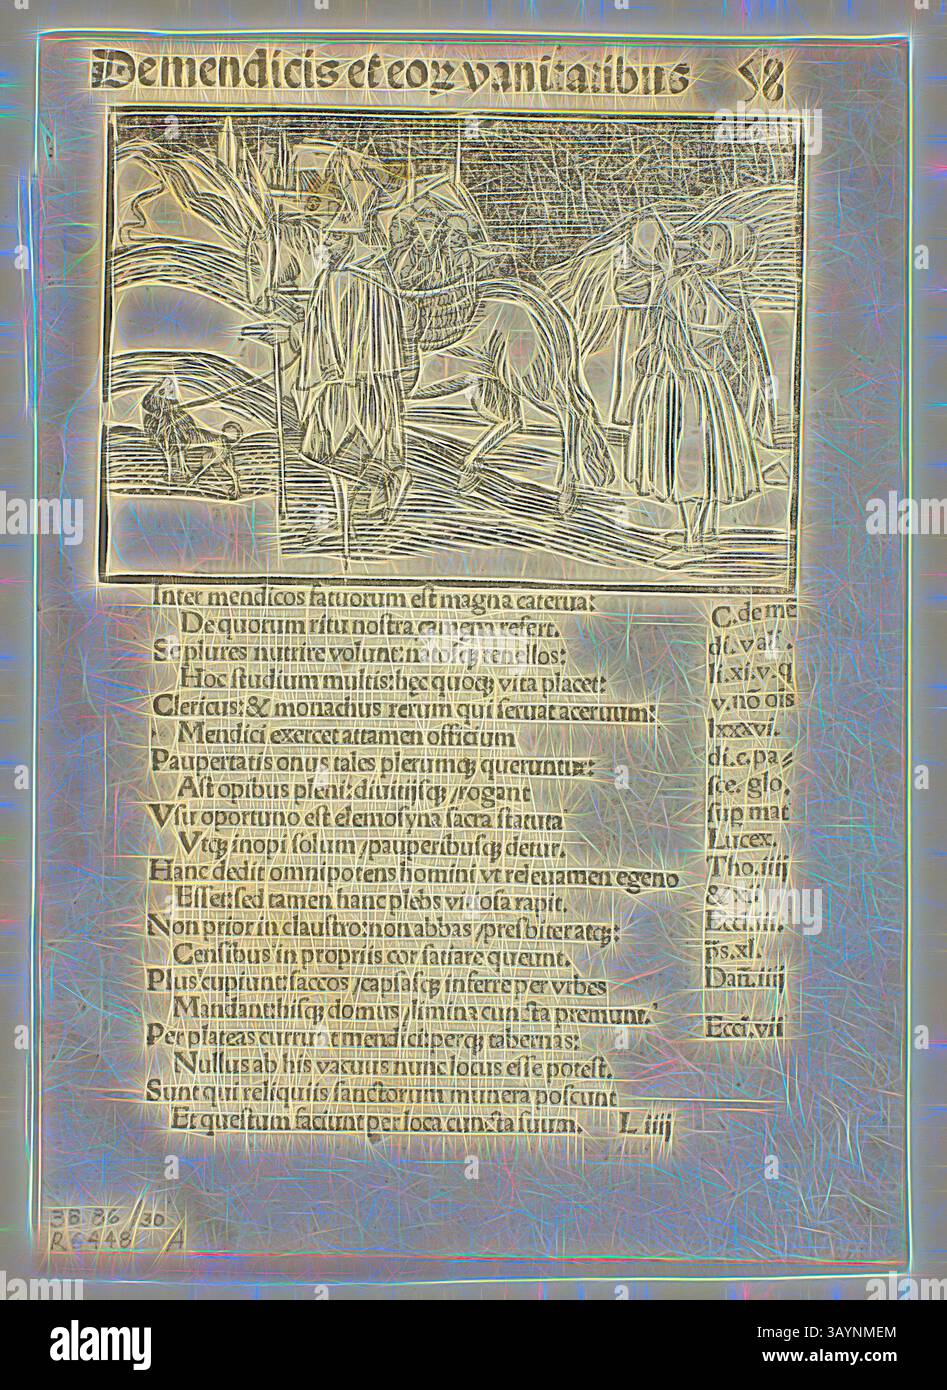 De mendicis et eoꝝ vanitatibus 58
Inter mendicos fatuorum est magna caterua:
De quorum ritu nostra camena refert.
Se plures nutrire volunt: natosq; tenellos:
Hoc studium multis: hęc quoq; vita placet:
Clericus: & monachus rerum qui seruat aceruum:
Mendici exercet attamen officium
Paupertatis onus tales plerumq; queruntur:
Ast opibus pleni: diuitijsq; / rogant
Vsu oportuno est elemosyna sacra statuta
Vtq; inopi solum / pauperibusq; detur.
Hanc dedit omnipotens homini vt releuamen egeno
Esset: sed tamen hanc plebs vitiosa rapit.
Non prior in claustro: non abbas / presbiter atq;:
Censibus in propriis cor satiare queunt.
Plus cupiunt: saccos / capsasq; inferre per vrbes
Mandant: hisq; domus / limina cuncta premunt.
Per plateas currunt mendici: perq; tabernas:
Nullus ab his vacuus nunc locus esse potest.
Sunt qui reliquiis sanctorum munera poscunt
Et questum faciunt per loca cuncta suum. L iiij
C. de mē
di. val.
li. xi. v. q
v. nō ois
lxxxvi.
di. c. pa⸗
sce. glo.
sup mat
Lucex.
Tho. iiij
& xi.
Ecci. iii.
ps. xl.
Dan. iiij
Ecci. vii
38.86/30
R6448 /A
alamy
Image ID: 3AYNMEM
www.alamy.com